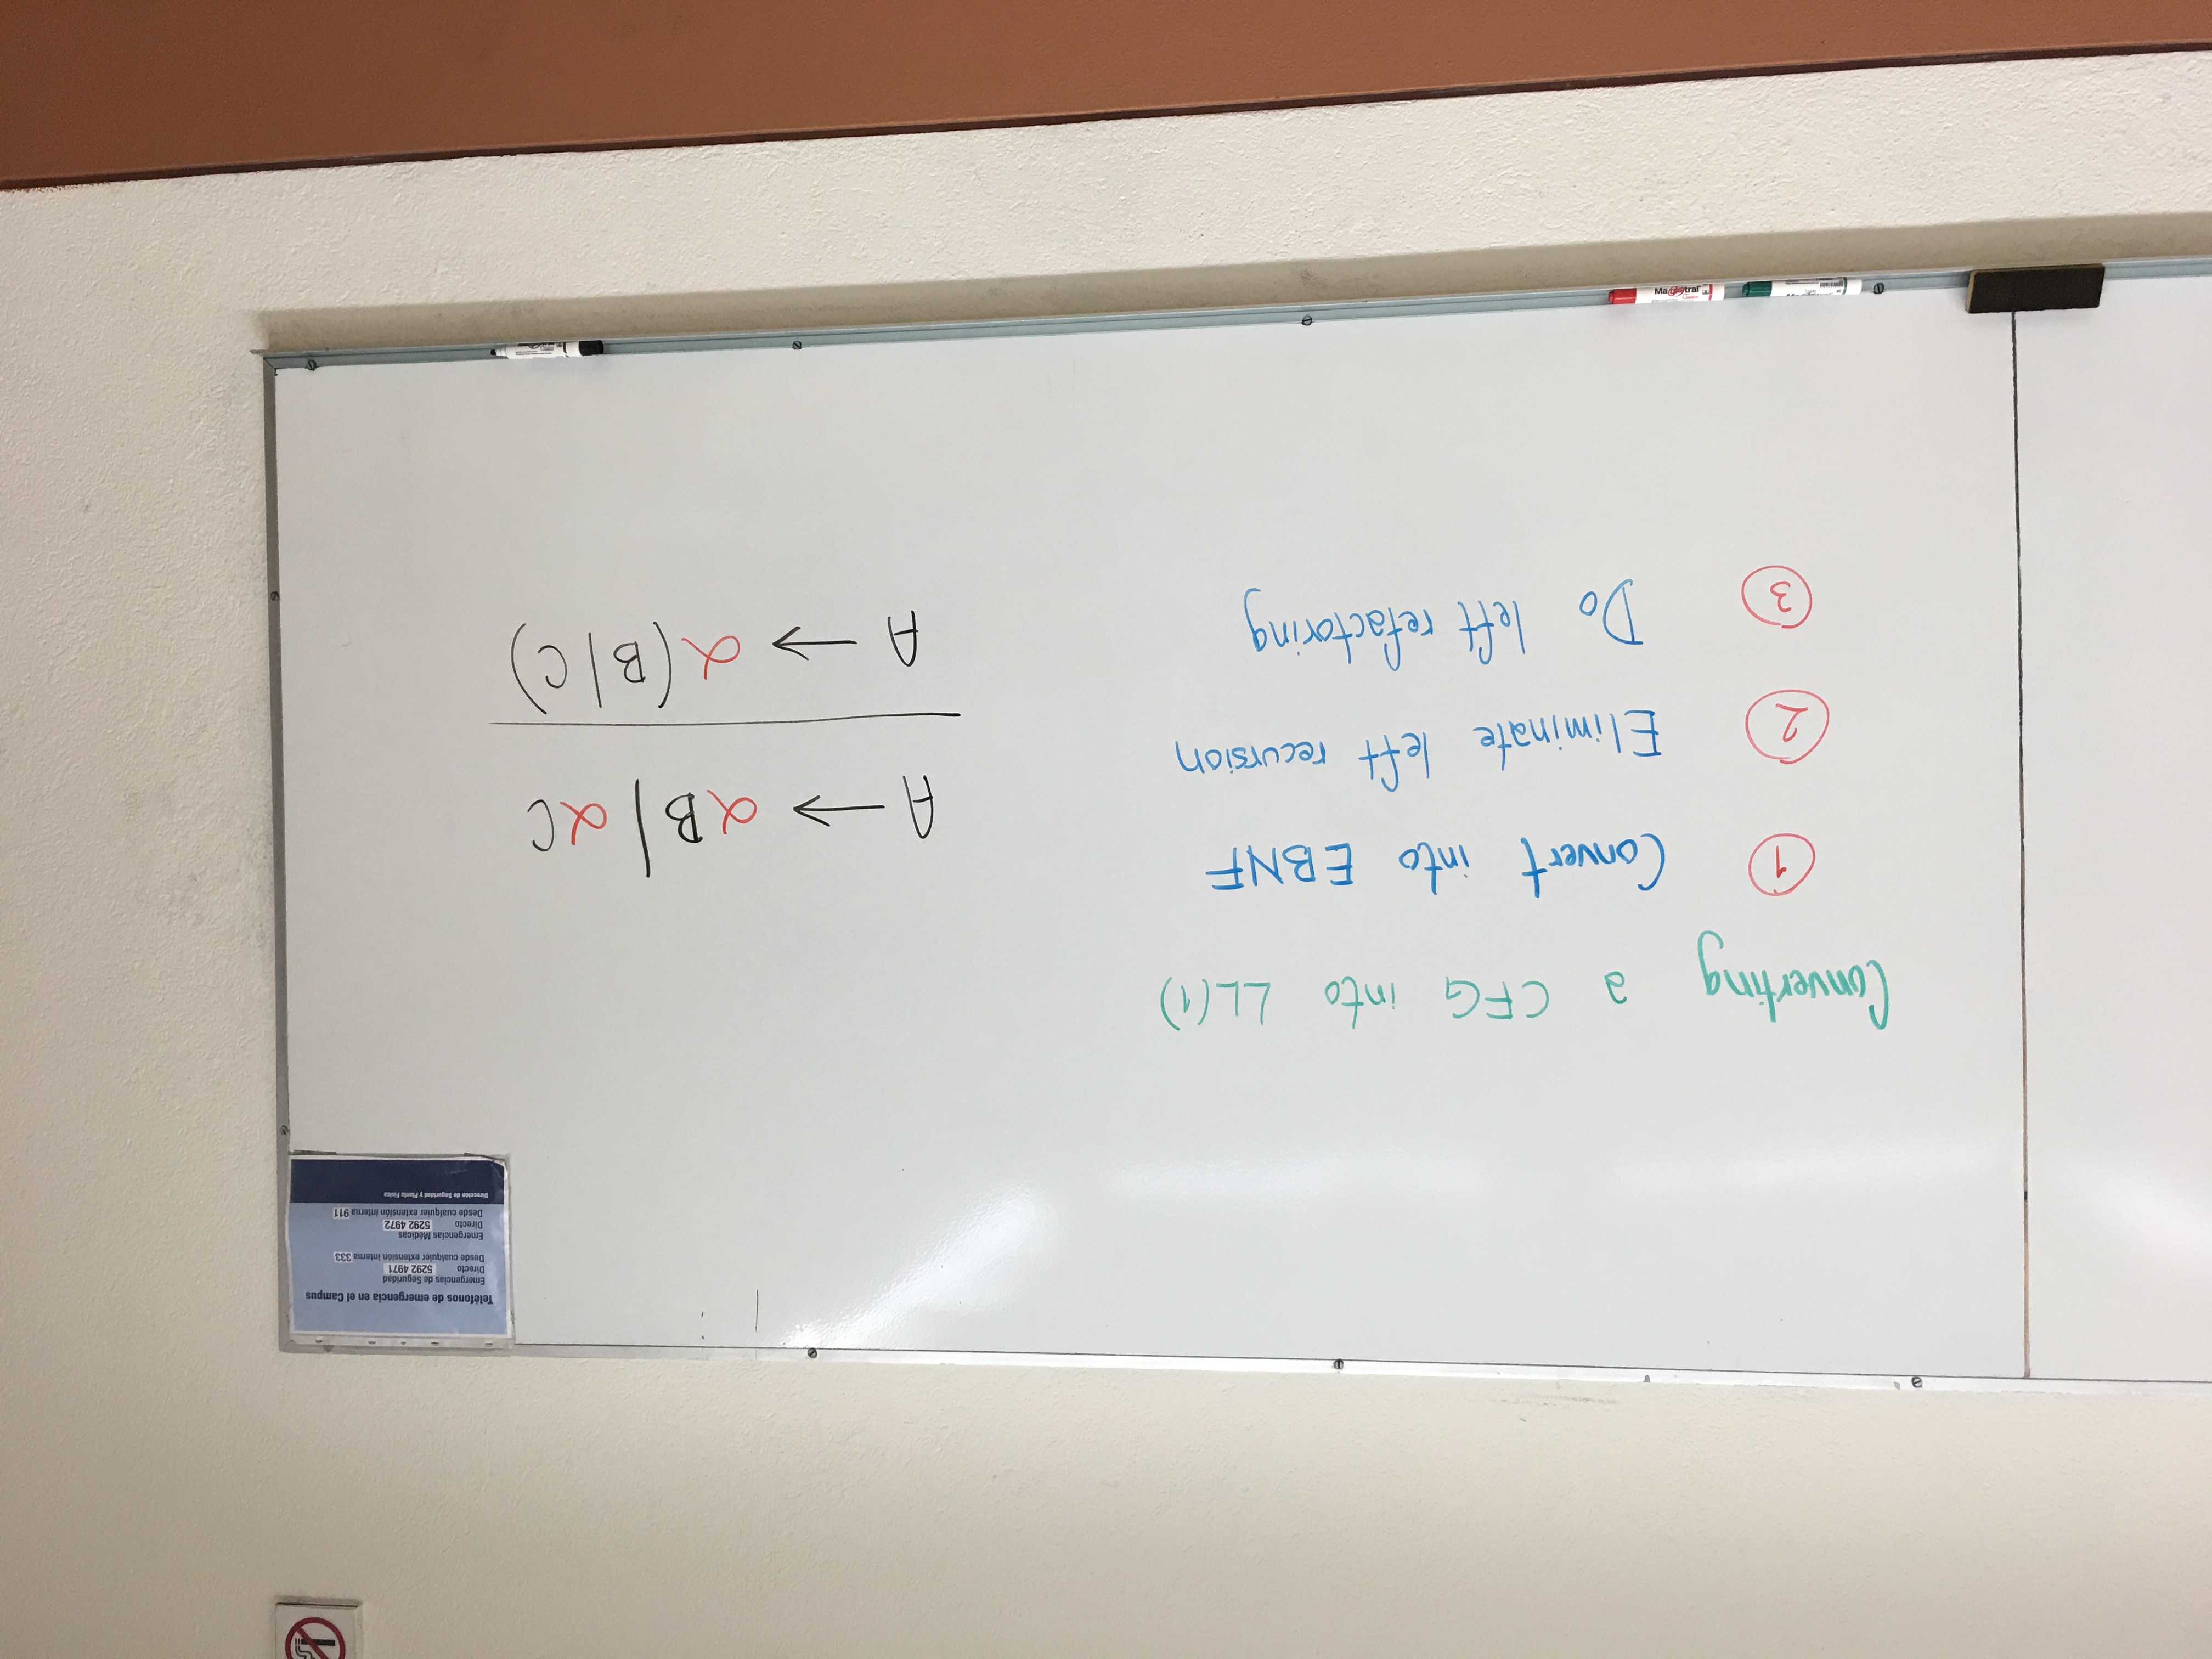 Teléfonos de emergencia en el Campus
Emergencias de Seguridad
Directo 5292 4971
Desde cualquier extensión interna 333
Emergencias Médicas
Directo 5292 4972
Desde cualquier extensión interna 911
Dirección de Seguridad y Planta Física
Converting a CFG into LL(1)
1 Convert into EBNF
2 Eliminate left recursion
3 Do left refactoring
A → αB | αC
A → α(B|C)
Magistral